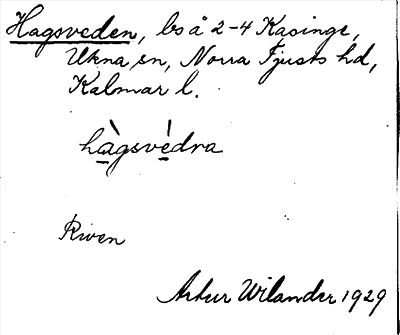 Hagsveden, lbs å 2-4 Kasinge,
Ukna sn, Norra Tjusts hd,
Kalmar l.
hàgsvédra
Riven
Artur Wilander 1929